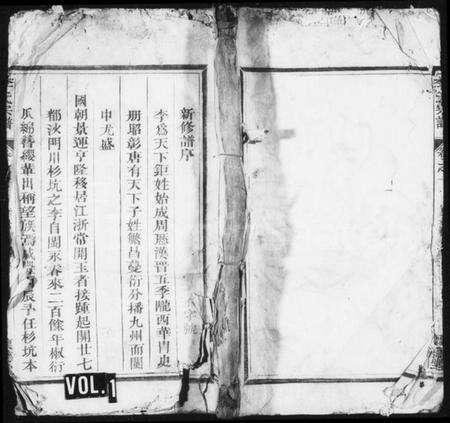 新修譜序
李爲天下鉅姓始成周歷漢晉五季隴西華胄史
册昭彰唐有天下子姓繁昌蔓衍分播九州而閩
中尤盛
國朝景運亨隆移居江浙常開玉者接踵起開廿七
都汾門川杉坑之李自閩永春來二百餘年椒衍
瓜綿簪纓輩出稱望族焉歲 辰予任杉坑本
VOL. 1